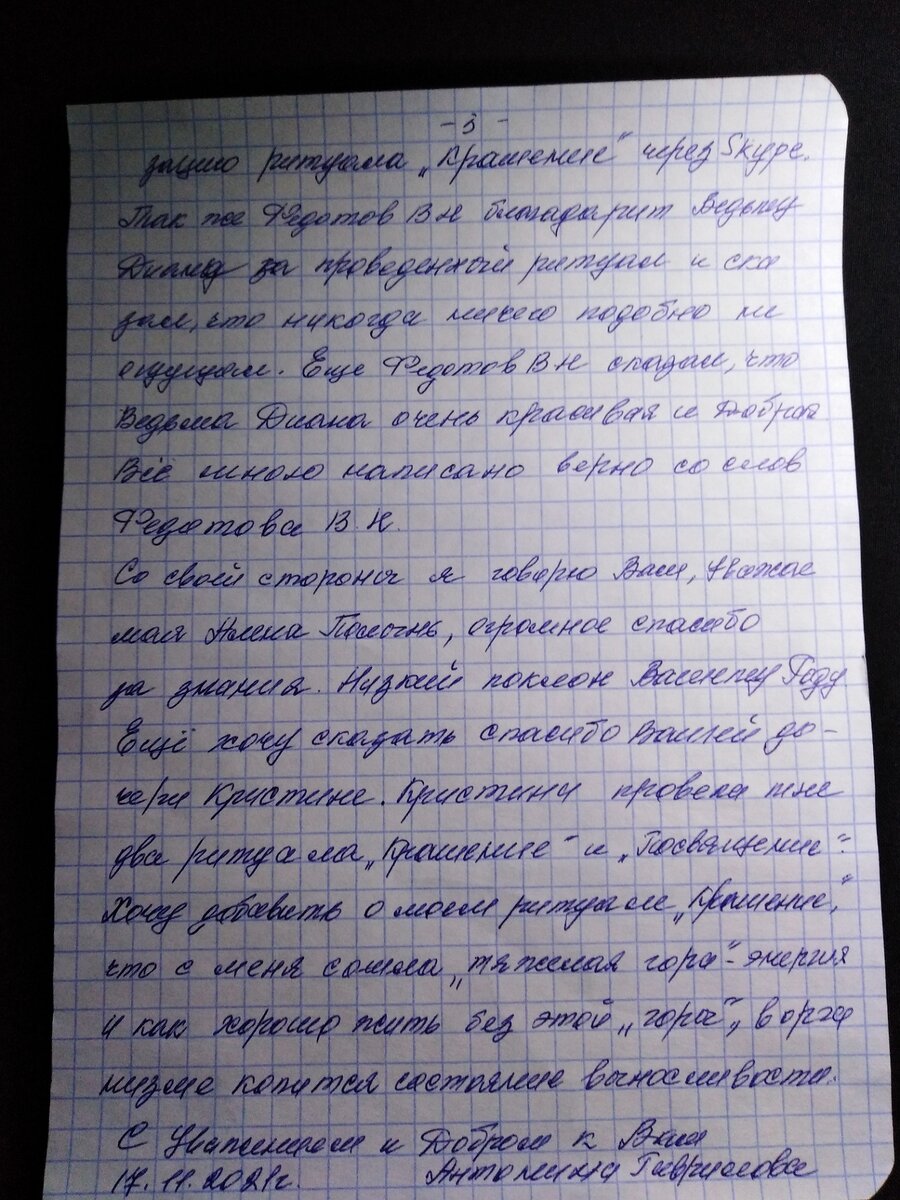 - 3 -
зацию ритуала „Крашение" через Skype.
Так же Федотов В Н благодарит Ведьму
Диану за проведенный ритуал и ска
зал, что никогда ничего подобно не
ощущал. Еще Федотов В Н сказал, что
Ведьма Диана очень красивая и Добрая
Всё мною написано верно со слов
Федотова В. Н.
Со своей стороны я говорю Вам, Уважае
мая Алена Полынь, огромное спасибо
за знания. Низкий поклон Вашему Роду.
Ещё хочу сказать спасибо Вашей до-
чери Кристине. Кристина провела мне
два ритуала „Крашение" и „Посвящение".
Хочу добавить о моем ритуале „Крашение",
что с меня сошла „тяжелая гора" - энергия
и как хорошо жить без этой „горы", в орга
низме копится состояние выносливости.
С Уважением и Добром к Вам
17. 11. 2021г. Антонина Гаврилова